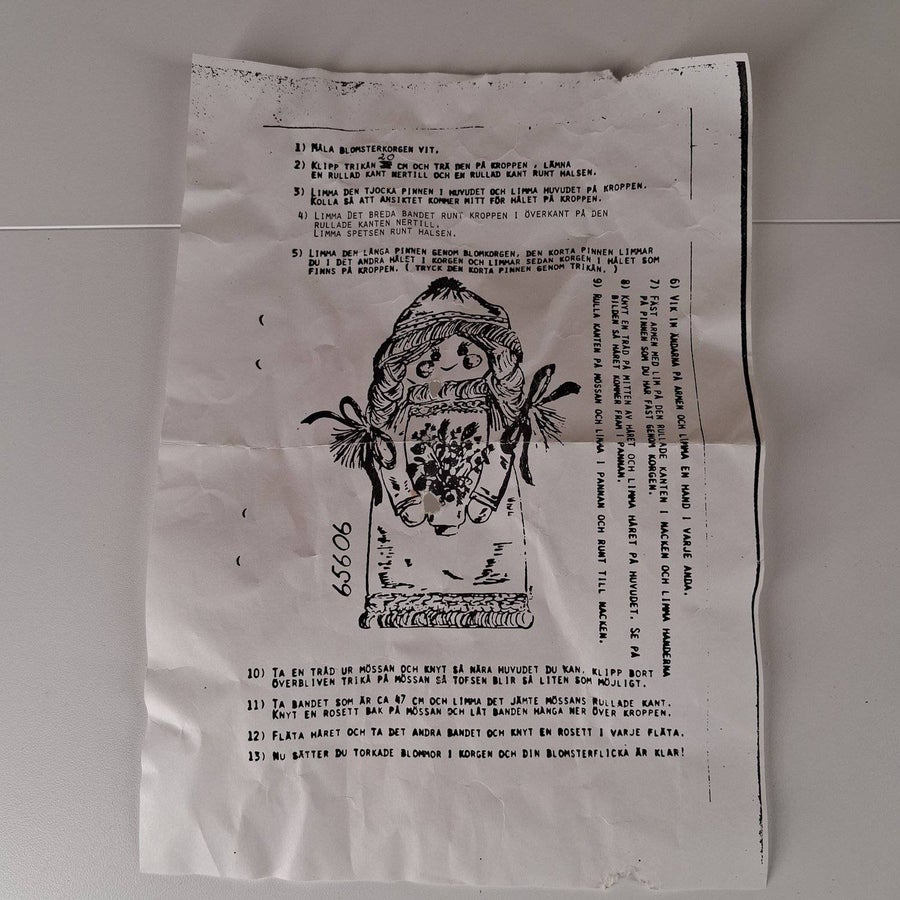 1) MÅLA BLOMSTERKORGEN VIT.
2) KLIPP TRIKÅN 20 CM OCH TRÄ DEN PÅ KROPPEN, LÄMNA
EN RULLAD KANT NERTILL OCH EN RULLAD KANT RUNT HALSEN.
3) LIMMA DEN TJOCKA PINNEN I HUVUDET OCH LIMMA HUVUDET PÅ KROPPEN.
KOLLA SÅ ATT ANSIKTET KOMMER MITT FÖR HÅLET PÅ KROPPEN.
4) LIMMA DET BREDA BANDET RUNT KROPPEN I ÖVERKANT PÅ DEN
RULLADE KANTEN NERTILL.
LIMMA SPETSEN RUNT HALSEN.
5) LIMMA DEN LÅNGA PINNEN GENOM BLOMKORGEN. DEN KORTA PINNEN LIMMAR
DU I DET ANDRA HÅLET I KORGEN OCH LIMMAR SEDAN KORGEN I HÅLET SOM
FINNS PÅ KROPPEN. ( TRYCK DEN KORTA PINNEN GENOM TRIKÅN. )
6) VIK IN ÄNDARNA PÅ ARMEN OCH LIMMA EN HAND I VARJE ÄNDA.
7) FÄST ARMEN MED LIM PÅ DEN RULLADE KANTEN I NACKEN OCH LIMMA HÄNDERNA
PÅ PINNEN SOM DU HAR FÄST GENOM KORGEN.
8) KNYT EN TRÅD PÅ MITTEN AV HÅRET OCH LIMMA HÅRET PÅ HUVUDET. SE PÅ
BILDEN SÅ HÅRET KOMMER FRAM I PANNAN.
9) RULLA KANTEN PÅ MÖSSAN OCH LIMMA I PANNAN OCH RUNT TILL NACKEN.
65606
10) TA EN TRÅD UR MÖSSAN OCH KNYT SÅ NÄRA HUVUDET DU KAN. KLIPP BORT
ÖVERBLIVEN TRIKÅ PÅ MÖSSAN SÅ TOFSEN BLIR SÅ LITEN SOM MÖJLIGT.
11) TA BANDET SOM ÄR CA 47 CM OCH LIMMA DET JÄMTE MÖSSANS RULLADE KANT.
KNYT EN ROSETT BAK PÅ MÖSSAN OCH LÅT BANDEN HÄNGA NER ÖVER KROPPEN.
12) FLÄTA HÅRET OCH TA DET ANDRA BANDET OCH KNYT EN ROSETT I VARJE FLÄTA.
13) NU SÄTTER DU TORKADE BLOMMOR I KORGEN OCH DIN BLOMSTERFLICKA ÄR KLAR!